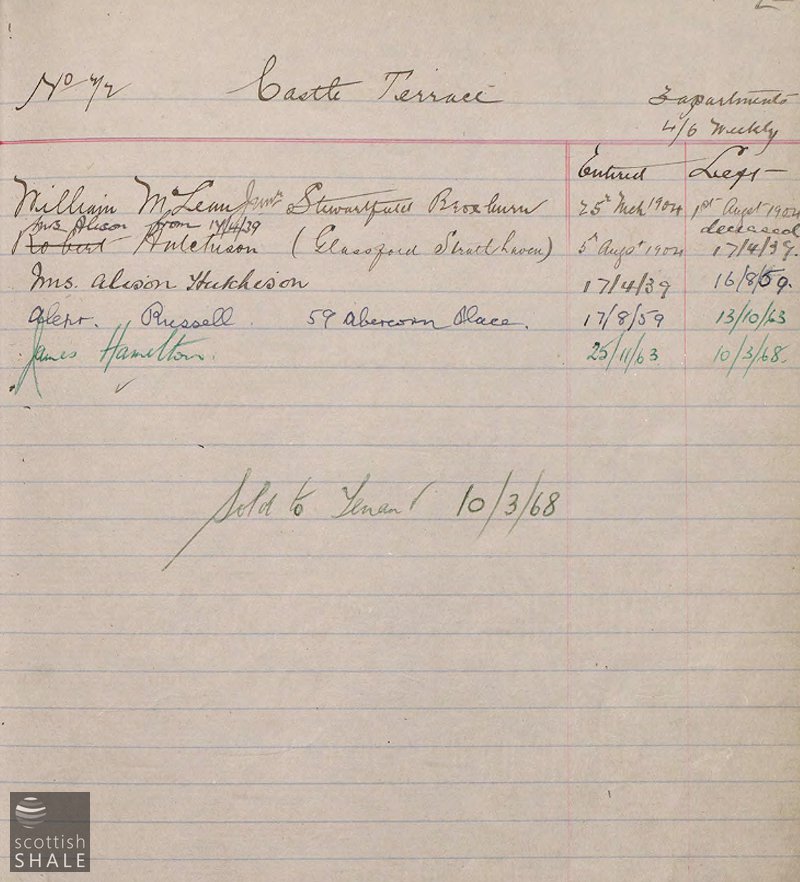 No 42 Castle Terrace 3 apartments
4/6 Weekly
Entered Left
William McLean Junr Stewartfield Broxburn 25th Mch 1904 1st Augst 1904
Mrs Alison from 17/4/39 deceased
Robert Hutchison (Glassford Strathaven) 5th Augst 1904 17/4/39.
Mrs. Alison Hutchison 17/4/39 16/8/59.
Alexr. Russell. 59 Abercorn Place. 17/8/59 13/10/63
James Hamilton. 25/11/63. 10/3/68.
Sold to Tenant 10/3/68
scottish
SHALE